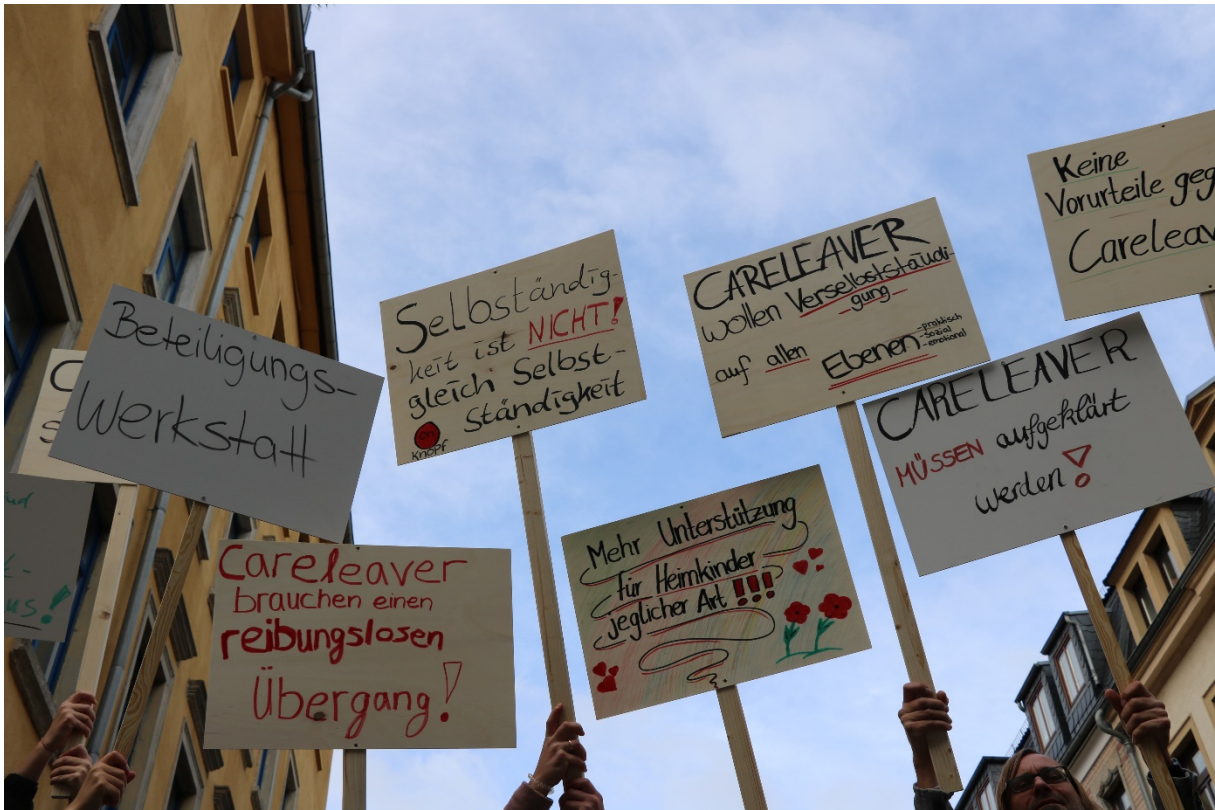 Beteiligungs-
Werkstatt
Careleaver
brauchen einen
reibungslosen
Übergang!
Selbständig-
keit ist NICHT!
gleich Selbst-
Ständigkeit
on
Knopf
Mehr Unterstützung
für Heimkinder
jeglicher Art !!!
CARELEAVER
wollen Verselbstständi-
gung
auf allen Ebenen
-praktisch
-sozial
-emotional
CARELEAVER
MÜSSEN aufgeklärt
werden!
Keine
Vorurteile geg
Careleav